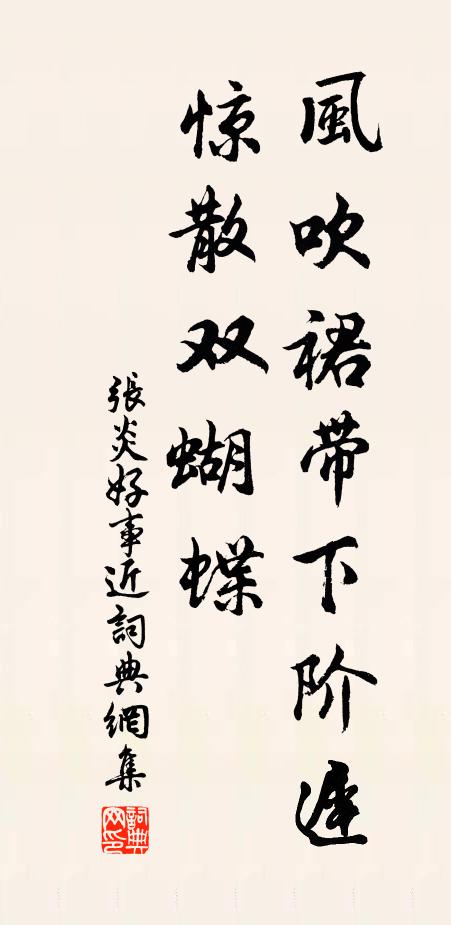 風吹裙带下阶遲
惊散双蝴蝶
張炎好事近詞典網集
詞典网印